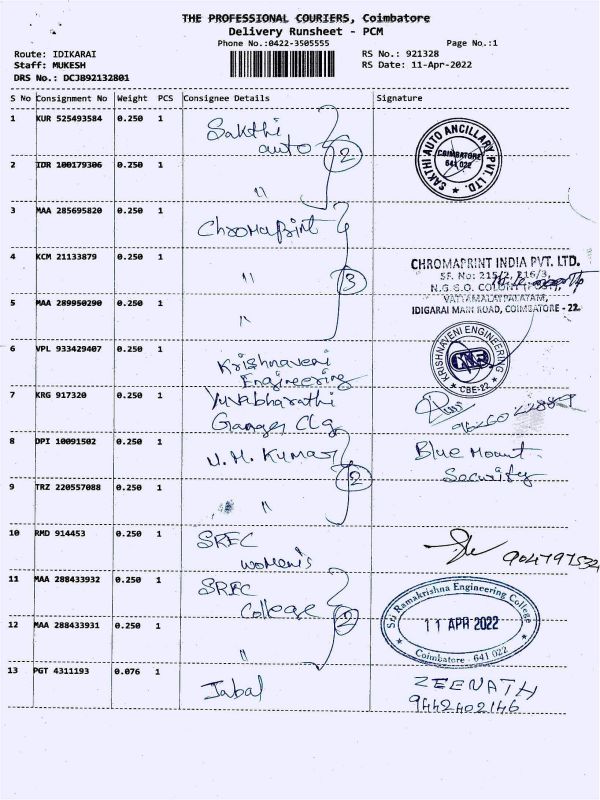 THE PROFESSIONAL COURIERS, Coimbatore
Delivery Runsheet - PCM
Phone No.:0422-3505555
Page No.:1
Route: IDIKARAI
RS No.: 921328
Staff: MUKESH
RS Date: 11-Apr-2022
DRS No.: DCJ892132801
S No Consignment No Weight PCS Consignee Details Signature
1 KUR 525493584 0.250 1 Sakthi auto
2
SAKTHI AUTO ANCILLARY PVT. LTD.
COIMBATORE
641 022
2 IDR 100179306 0.250 1 "
3 MAA 285695820 0.250 1 Chromaprint
4 KCM 21133879 0.250 1 "
3
CHROMAPRINT INDIA PVT. LTD.
SF. No: 215/2, 216/3,
N.G.G.O. COLONY (POST),
VATTAMALAIPALAYAM,
IDIGARAI MAIN ROAD, COIMBATORE - 22.
5 MAA 289950290 0.250 1 "
6 VPL 933429407 0.250 1 Krishnaveni Engineering
KRISHNAVENI ENGINEERING
CBE-22
7 KRG 917320 0.250 1 Yuvabharathi Ganges Clg
8 DPI 10091502 0.250 1 U.M. Kumar
2
Blue Mount
Security
9 TRZ 220557088 0.250 1 "
10 RMD 914453 0.250 1 SREC women's
11 MAA 288433932 0.250 1 SREC College
2
Sri Ramakrishna Engineering College
11 APR 2022
Coimbatore - 641 022
12 MAA 288433931 0.250 1 "
13 PGT 4311193 0.076 1 Jabal
ZEENATH
9442402146